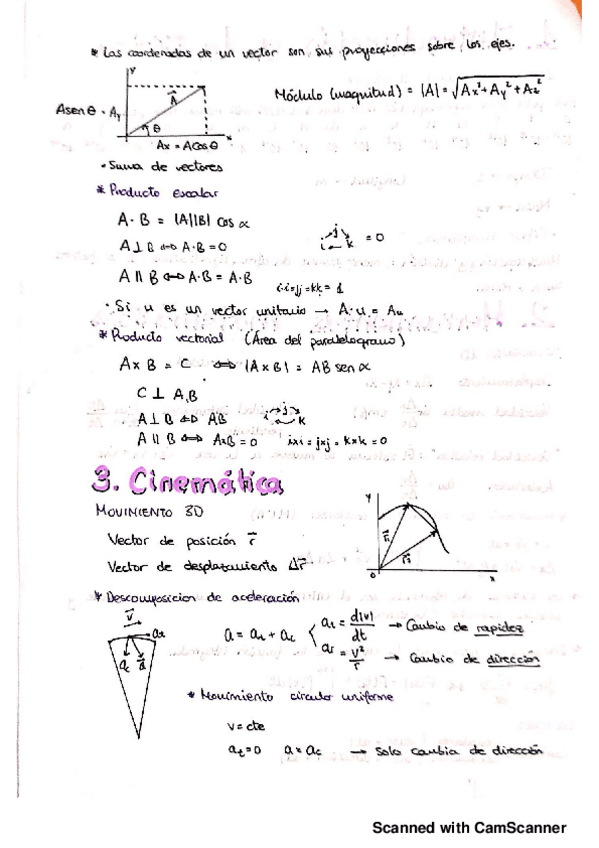 * Las coordenadas de un vector son sus proyecciones sobre los ejes.
y
A sen θ = Ay
A
θ
x
Ax = A cos θ
Módulo (magnitud) = |A| = √Ax² + Ay² + Az²
• Suma de vectores
* Producto escalar
A · B = |A||B| cos α
A ⊥ B ⇔ A·B = 0
i j k = 0
A || B ⇔ A·B = A·B
i·i = j·j = k·k = 1
• Si u es un vector unitario → A·u = Au
* Producto vectorial (Área del paralelogramo)
A x B = C ⇔ |A x B| = AB sen α
C ⊥ A, B
A ⊥ B ⇔ AB
i j k
A || B ⇔ AxB = 0 ixi = jxj = kxk = 0
3. Cinemática
MOVIMIENTO 3D
Vector de posición r
Vector de desplazamiento Δr
y
r₁
r₂
0
x
* Descomposicion de aceleración
v
at
ac
a
a = at + ac
at = d|v|/dt → Cambio de rapidez
= v²/r → Cambio de dirección
* Movimiento circular uniforme
v = cte
at = 0 a = ac → Solo cambia de dirección
Scanned with CamScanner